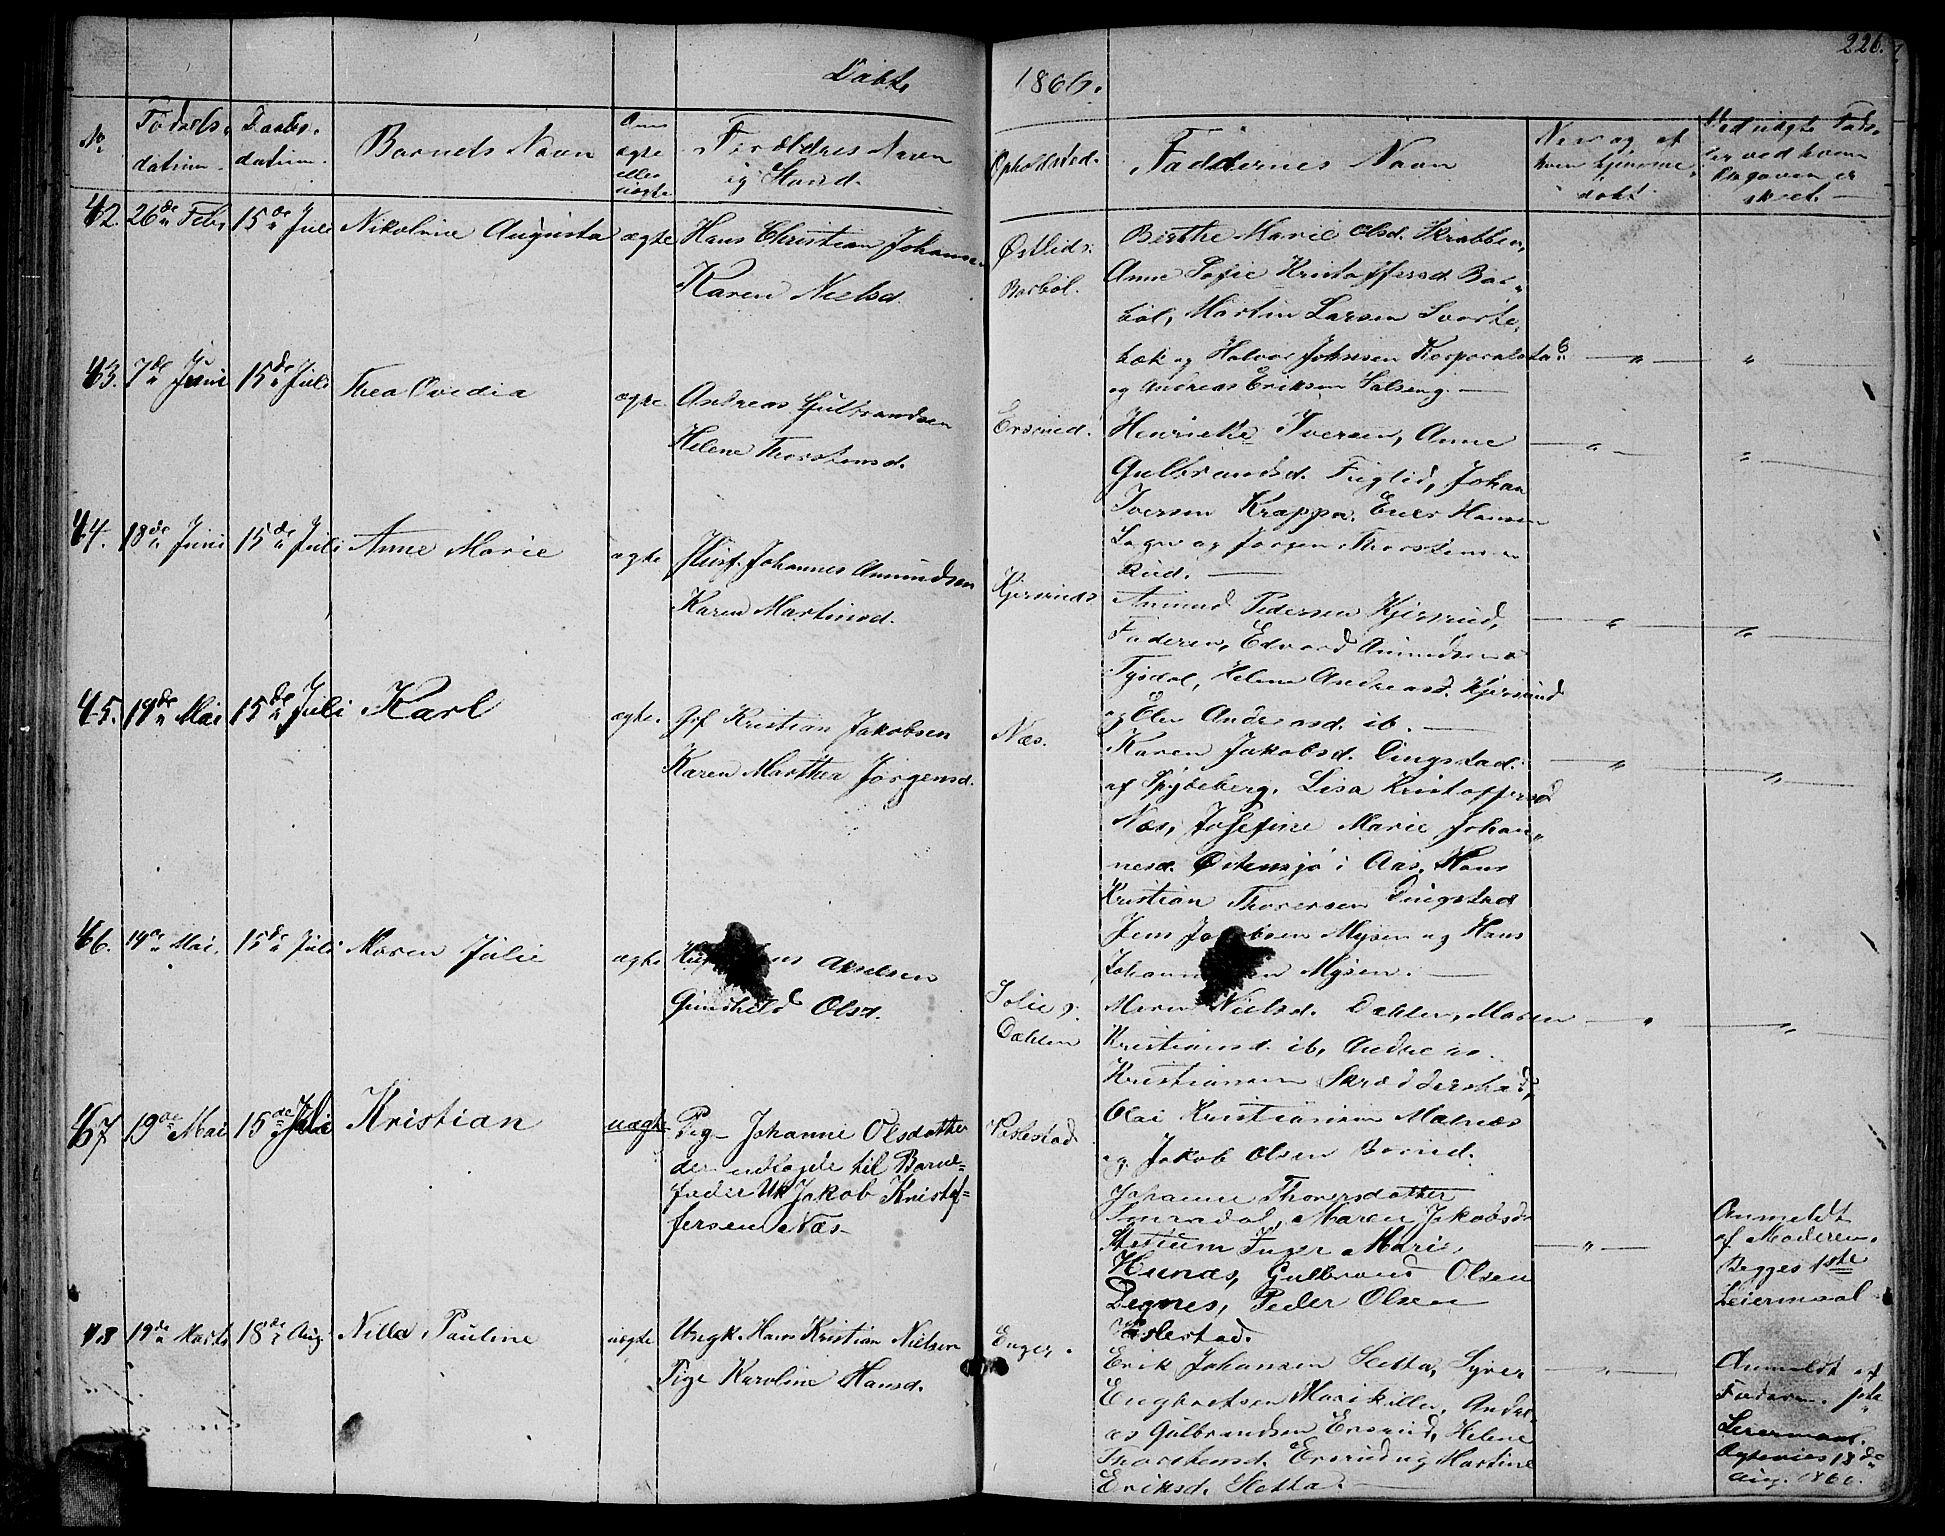 Døbte
1866.
226.
No
Fødsels-
datum.
Daabs-
datum.
Barnets Navn
Om
ægte
eller
uægte
Forældres Navn
og Stand.
Opholdssted.
Faddernes Navn
Naar og af
hvem hjemme-
døbt
Ved uægte Føds-
ler ved hvem
Opgaven er
skeet.
42. 26de Febr 15de Juli Nikoline Augusta ægte Hans Christian Johansen
Karen Nielsd.
Østlid
Barbøl.
Berthe Marie Olsd. Krabben,
Anne Sofie Kristoffersd. Bar-
bøl, Martin Larsen Svarte-
bæk og Halvor Johnsen
og Andreas Eriksen
43. 7de Juni 15de Juli Thea Ovedia ægte Andreas Gulbrandsen
Helene Thorstensd.
Ersrud.
Henrikke Iversen, Anne
Gulbrandsd. Fuglid, Johan
Iversen Krappa, Hansen
og Jørgen Thorstensen
Rud.
44. 18de Juni 15de Juli Anne Marie ægte Huusf. Johannes Amundsen
Karen Martinsd.
Kjersrud
Amund Pedersen Kjersrud,
Faderen, Edvard Amundsen
Tysdal, Helene Andreasd. Kjersrud
og Andreasd. ib.
45. 19de Mai 15de Juli Karl ægte Gf Kristian Jakobsen
Karen Marthea Jørgensd.
Næs.
Karen Jakobsd. Dingstad
af Spydeberg, Lisa Kristoffersd
Næs, Josefine Marie Johan-
nesd. Østensjø i Aas, Hans
Kristian Thoresen Dingstad
Jakobsen Mysen og Hans
Mysen.
46. 14de Mai. 15de Juli Maren Julie ægte Akselsen
Gunhild Olsd.
Dæhlen
Maren Nielsd. Dæhlen, Maren
Kristiansd. ib, Andreas
Kristiansen Skrædderstad,
Olai Kristiansen
og Jakob Olsen
47 19de Mai 15de Juli Kristian uægte Pige Johanne Olsdatter
der udlagde til Barne-
fader Uk Jakob Kristof-
fersen Næs
Haslestad
Johanne Thorersdatter
Maren Jakobsd.
Inger Marie
Hunæs, Gulbrand Olsen
Degnes, Peder Olsen
Haslestad.
Anmeldt
af Moderen.
Begges 1ste
Leiermaal
48 19de Marts 18de Aug Nilla Pauline uægte Ungk. Hans Kristian Nielsen
Pige Karoline Hansd.
Enger.
Erik Johansen Sletta, Syver
Engbretsen Andre-
as Gulbrandsen Ersrud, Helene
Thorstensd. Ersrud og Martine
Eriksd. Sletta.
Anmeldt af
Faderen. 1ste
Leiermaal.
18de
Aug. 1866.